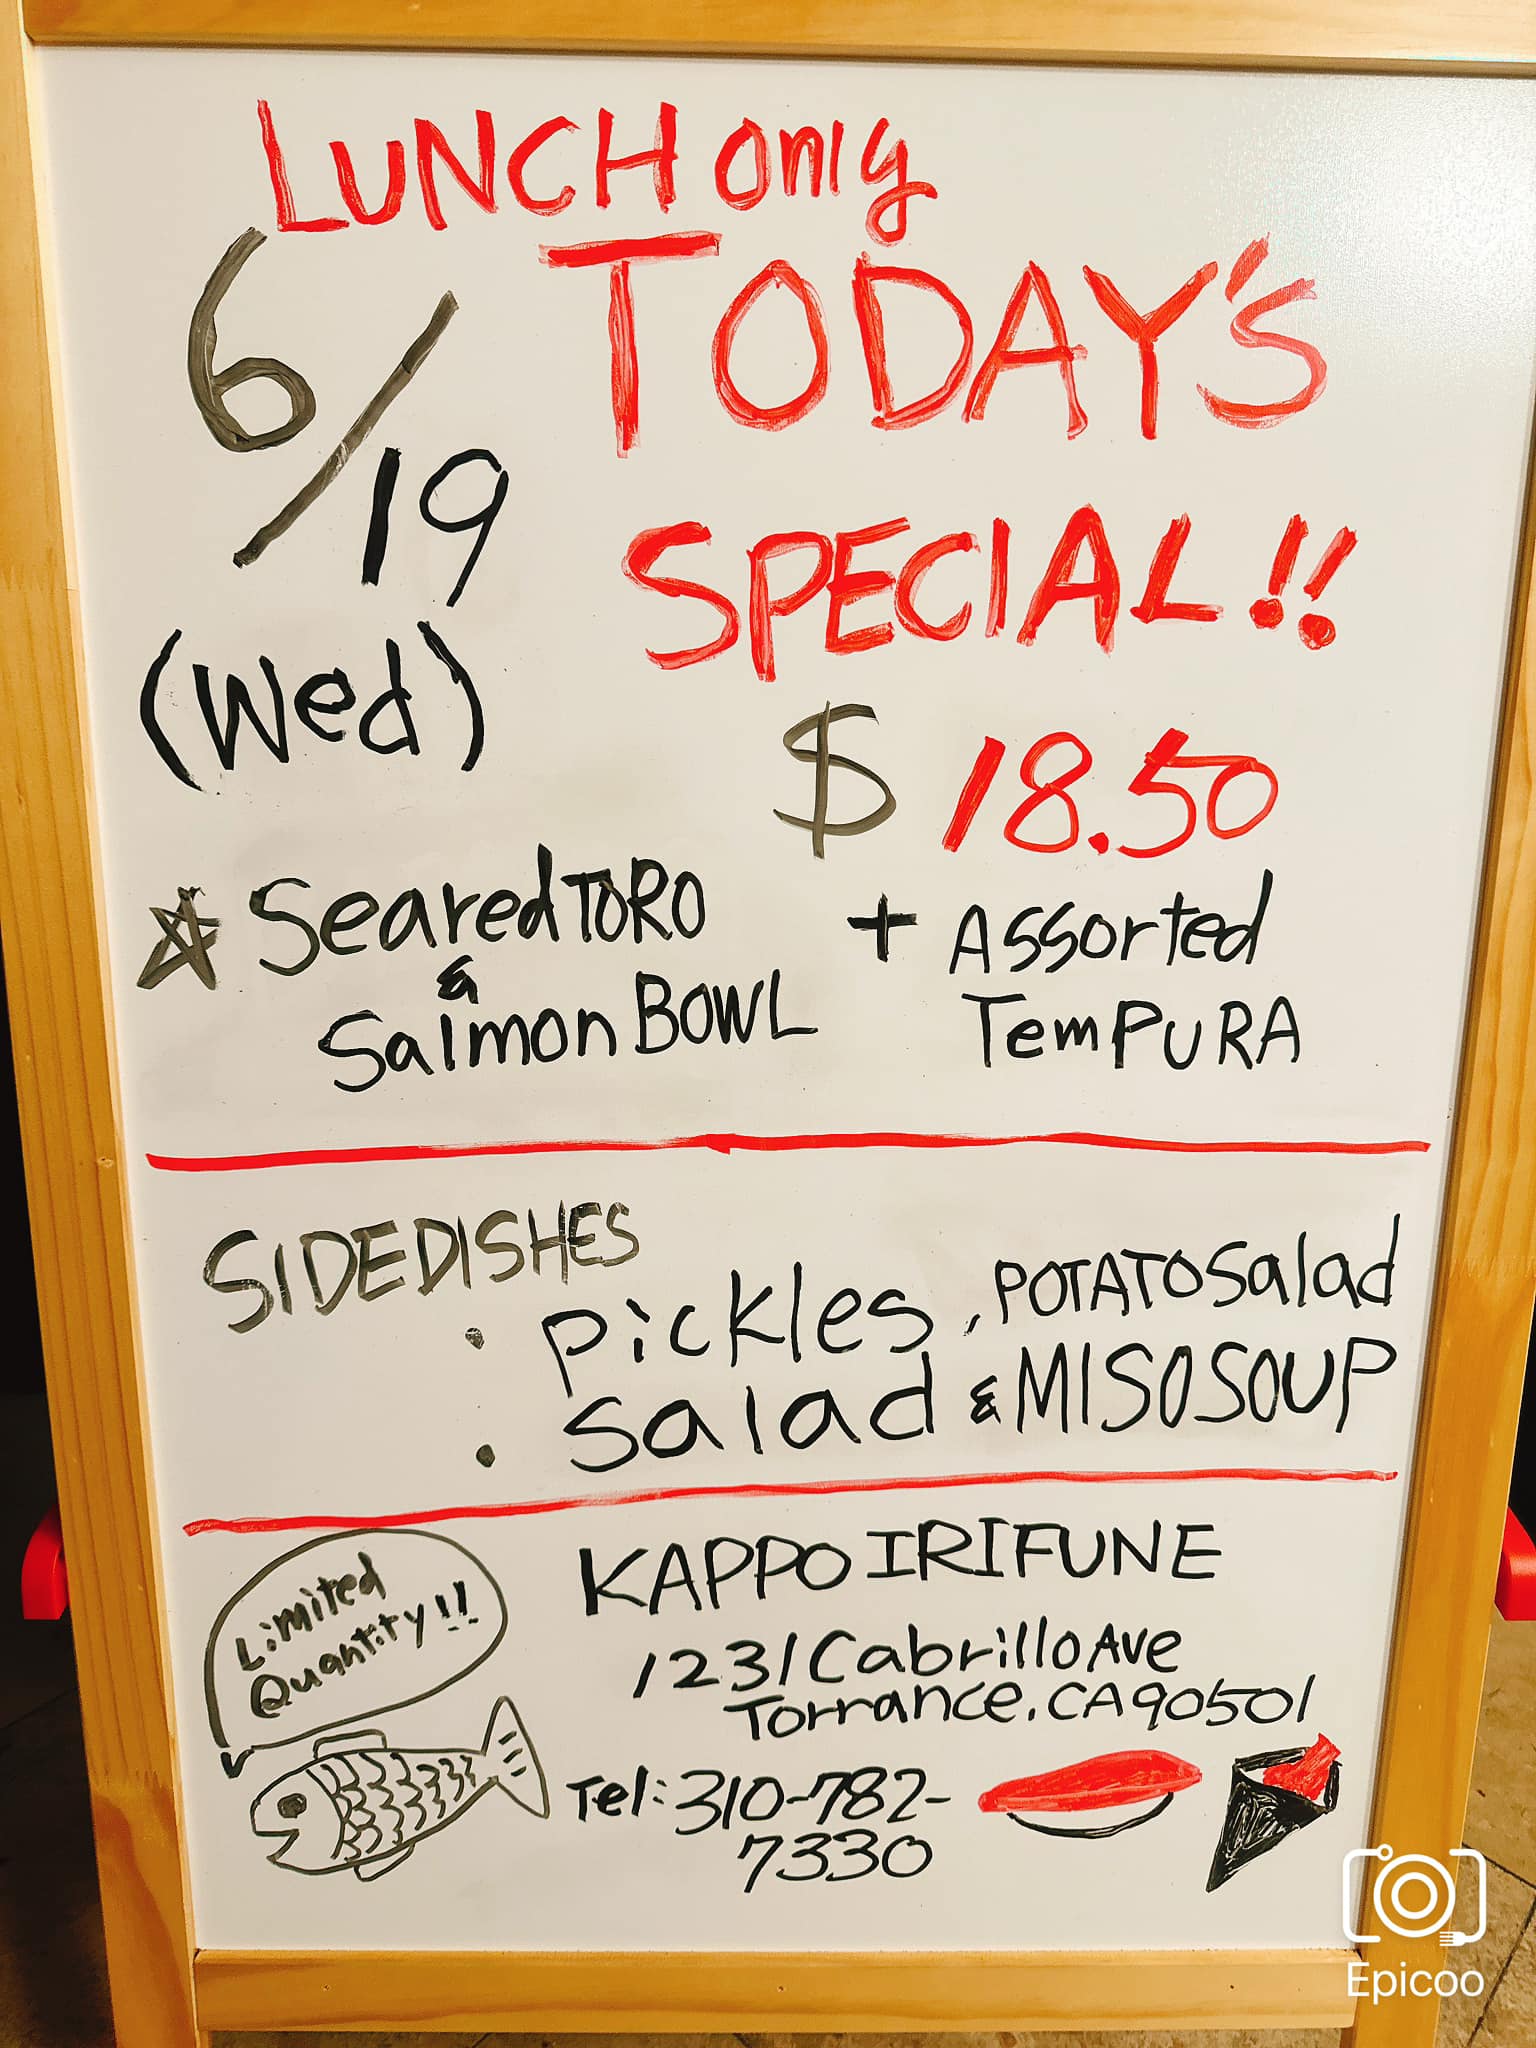 LUNCH only
6/19 TODAY'S
SPECIAL!!
(Wed)
$ 18.50
☆ Seared TORO
&
Salmon BOWL
+ Assorted
TemPURA
SIDEDISHES
• Pickles, POTATO Salad
• Salad & MISO SOUP
Limited
Quantity!!
KAPPO IRIFUNE
1231 Cabrillo Ave
Torrance, CA 90501
Tel: 310-782-
7330
Epicoo